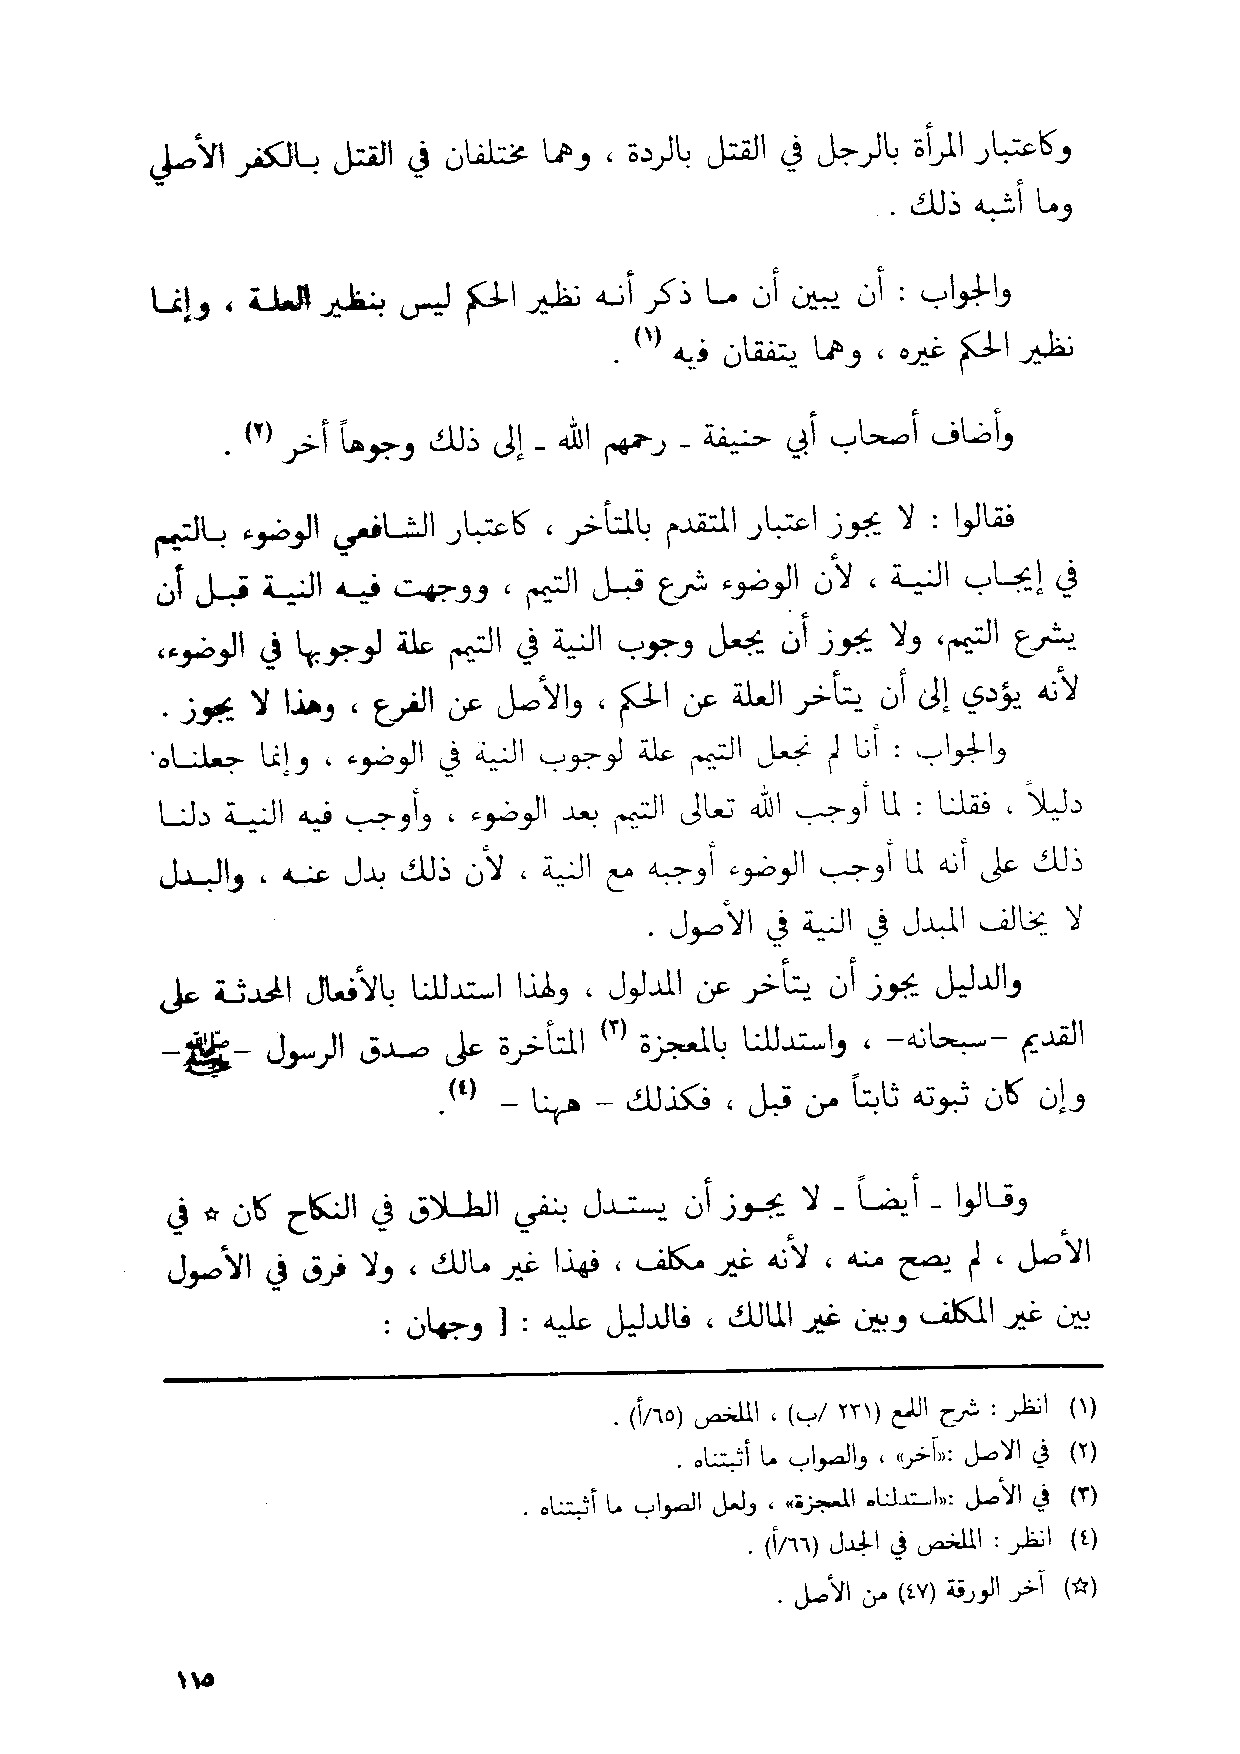 وكاعتبار المرأة بالرجل في القتل بالردة ، وهما مختلفان في القتل بالكفر الأصلي
وما أشبه ذلك .
والجواب : أن يبين أن ما ذكر أنه نظير الحكم ليس بنظير العلة ، وإنما
نظير الحكم غيره ، وهما يتفقان فيه (١) .
وأضاف أصحاب أبي حنيفة - رحمهم الله - إلى ذلك وجوهاً أخر (٢) .
فقالوا : لا يجوز اعتبار المتقدم بالمتأخر ، كاعتبار الشافعي الوضوء بالتيمم
في إيجاب النية ، لأن الوضوء شرع قبل التيمم ، ووجهت فيه النية قبل أن
يشرع التيمم، ولا يجوز أن يجعل وجوب النية في التيمم علة لوجوبها في الوضوء،
لأنه يؤدي إلى أن يتأخر العلة عن الحكم ، والأصل عن الفرع ، وهذا لا يجوز .
والجواب : أنا لم نجعل التيمم علة لوجوب النية في الوضوء ، وإنما جعلناه
دليلاً ، فقلنا : لما أوجب الله تعالى التيمم بعد الوضوء ، وأوجب فيه النية دلنا
ذلك على أنه لما أوجب الوضوء أوجبه مع النية ، لأن ذلك بدل عنه ، والبدل
لا يخالف المبدل في النية في الأصول .
والدليل يجوز أن يتأخر عن المدلول ، ولهذا استدللنا بالأفعال المحدثة على
القديم -سبحانه- ، واستدللنا بالمعجزة (٣) المتأخرة على صدق الرسول -ﷺ-
وإن كان ثبوته ثابتاً من قبل ، فكذلك - ههنا - (٤).
وقالوا - أيضاً - لا يجوز أن يستدل بنفي الطلاق في النكاح كان ☆ في
الأصل ، لم يصح منه ، لأنه غير مكلف ، فهذا غير مالك ، ولا فرق في الأصول
بين غير المكلف وبين غير المالك ، فالدليل عليه : [ وجهان :
(١) انظر : شرح اللمع (٢٣١ /ب) ، الملخص (٦٥/أ) .
(٢) في الاصل :«آخر» ، والصواب ما أثبتناه .
(٣) في الأصل :«استدلناه المعجزة» ، ولعل الصواب ما أثبتناه .
(٤) انظر : الملخص في الجدل (٦٦/أ) .
(☆) آخر الورقة (٤٧) من الأصل .
١١٥